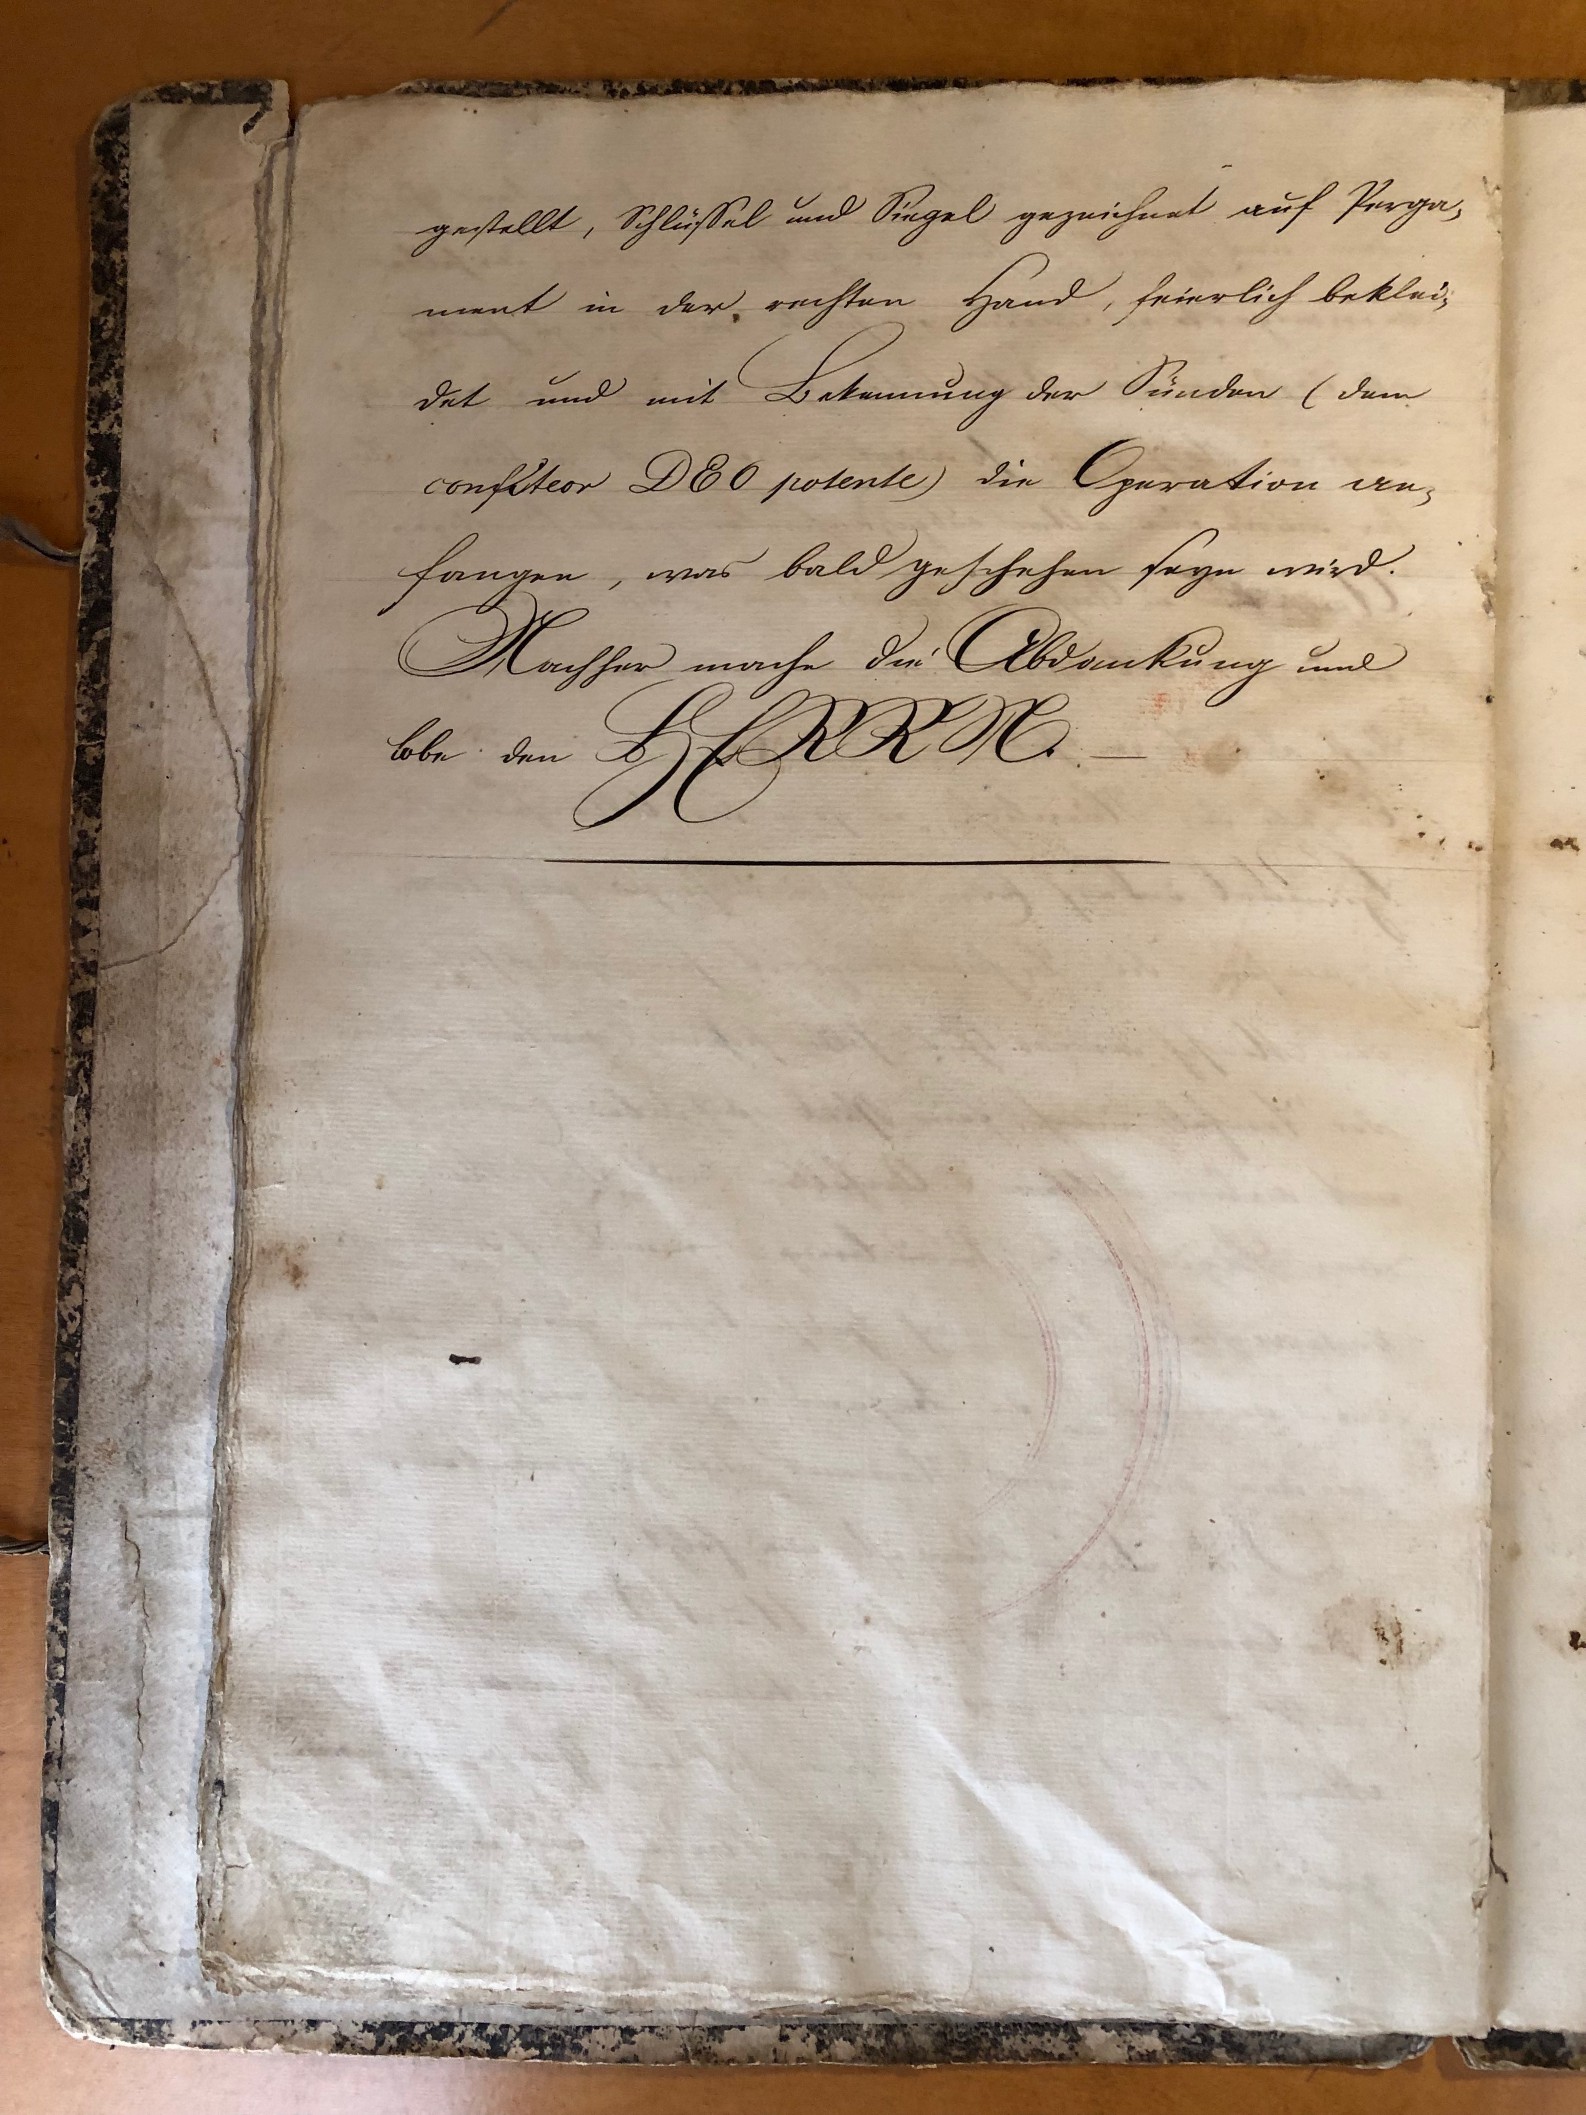 gestellt, Schlüssel und Siegel gezeichnet auf Perga,
ment in der rechten Hand, feierlich beklei,
det und mit Bekennung der Sünden (dem
confiteor DEO potente) die Operation an,
fangen, was bald geschehen seyn wird.
Nachher mache die Abdankung und
lobe den HERRN. —